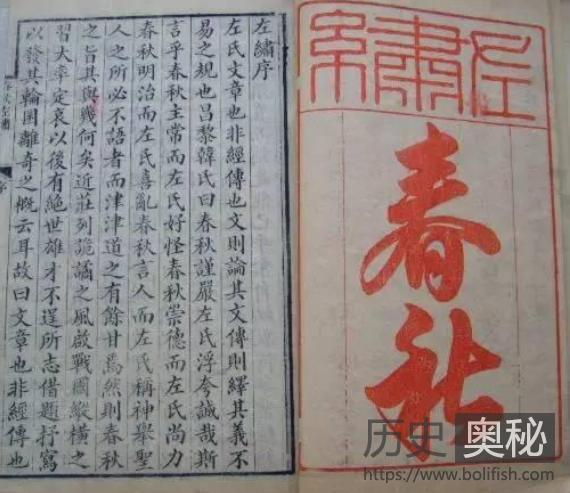 左繡
春秋
左繡序
左氏文章也非經傳也文則論其文傳則繹其義不
易之規也昌黎韓氏曰春秋謹嚴左氏浮夸誠哉斯
言乎春秋主常而左氏好怪春秋崇德而左氏尚力
春秋明治而左氏喜亂春秋言人而左氏稱神舉聖
人之所必不語者而津津道之有餘甘焉然則春秋
之旨其與幾何矣近莊列詭譎之風啟戰國縱橫之
習大率定哀以後有絕世雄才不逞所志借題抒寫
以發其輪囷離奇之概云耳故曰文章也非經傳也
历史奥秘
https://www.bolifish.com/